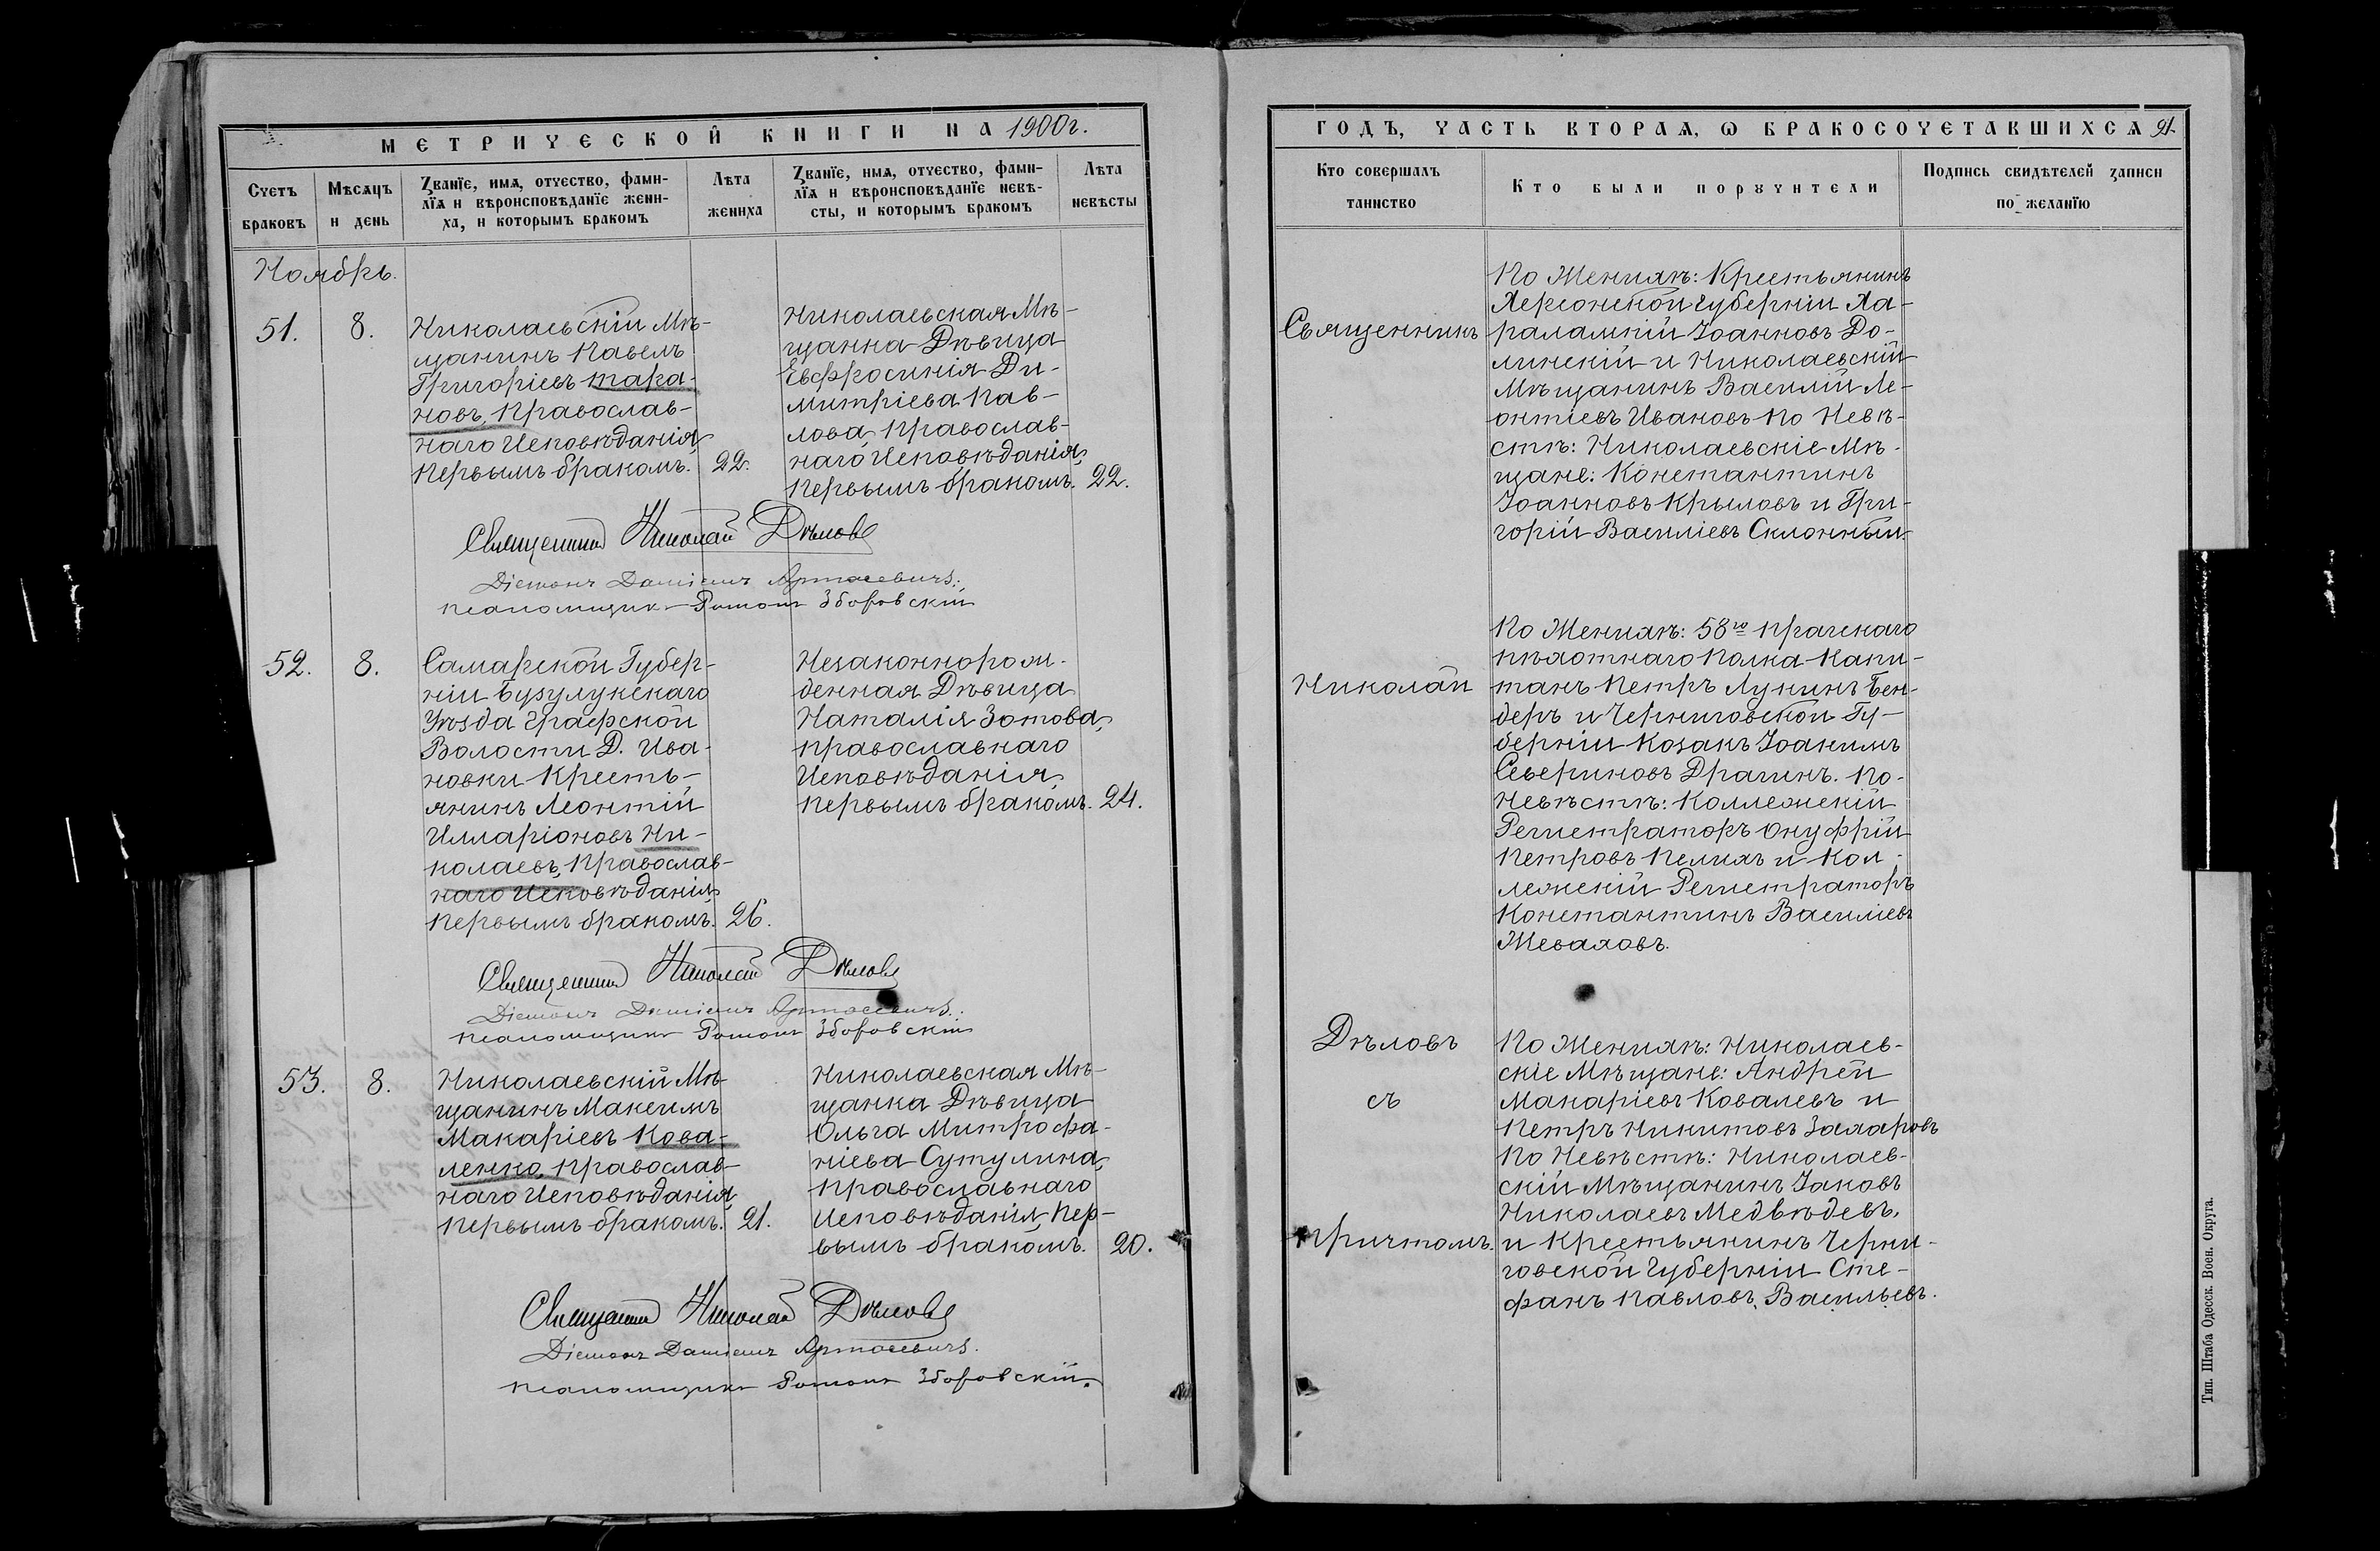 МЕТРИЧЕСКОЙ КНИГИ НА 1900г.
Счетъ браковъ
Мѣсяцъ и день
Званїе, имя, отчество, фами-
лїя и вѣроисповѣданїе жени-
ха, и которымъ бракомъ
Лѣта жениха
Званїе, имя, отчество, фами-
лїя и вѣроисповѣданїе невѣ-
сты, и которымъ бракомъ
Лѣта невѣсты
Ноябрь.
51.
8.
Николаевскій Мѣ-
щанинъ Павелъ
Григоріевъ Тара-
новъ, Православ-
наго Исповѣданія,
Первымъ бракомъ.
22.
Николаевская Мѣ-
щанка Дѣвица
Евфросинія Ди-
митріева Пав-
лова, Православ-
наго Исповѣданія,
Первымъ бракомъ.
22.
Священникъ Николай Дѣловъ
Діаконъ Даміанъ
Псаломщикъ Романъ Зборовскій
52.
8.
Самарской Губер-
ніи Бузулукскаго
Уѣзда Графской
Волости Д. Ива-
новки Кресть-
янинъ Леонтій
Илларіоновъ Ни-
колаевъ, Православ-
наго Исповѣданія,
Первымъ бракомъ.
26.
Незаконнорож-
денная Дѣвица
Наталія Зотова,
Православнаго
Исповѣданія,
Первымъ бракомъ.
24.
Священникъ Николай Дѣловъ
Діаконъ Даміанъ
Псаломщикъ Романъ Зборовскій
53.
8.
Николаевскій Мѣ-
щанинъ Максимъ
Макаріевъ Кова-
ленко, Православ-
наго Исповѣданія,
Первымъ бракомъ.
21.
Николаевская Мѣ-
щанка Дѣвица
Ольга Митрофа-
ніева Сутулина,
Православнаго
Исповѣданія, Пер-
вымъ бракомъ.
20.
Священникъ Николай Дѣловъ
Діаконъ Даміанъ
Псаломщикъ Романъ Зборовскій.
ГОДЪ, ЧАСТЬ ВТОРАЯ, Ѡ БРАКОСОЧЕТАВШИХСЯ 91.
Кто совершалъ таинство
Кто были порꙋчители
Подпись свидѣтелей записи по желанїю
Священникъ
Николай
Дѣловъ
съ
причтомъ.
По Женихѣ: Крестьянинъ
Херсонской Губерніи Ха-
ралампій Іоанновъ До-
линскій и Николаевскій
Мѣщанинъ Василій Ле-
онтіевъ Ивановъ По Невѣ-
стѣ: Николаевскіе Мѣ-
щане: Константинъ
Іоанновъ Крыловъ и Гри-
горій Василіевъ Склонный.
По Женихѣ: 58го Прагскаго
пѣхотнаго Полка Капи-
танъ Петръ Лукинъ Бен-
деръ и Черниговской Гу-
берніи Козакъ Іоакимъ
Севериновъ Драгинъ. По
Невѣстѣ: Коллежскій
Регистраторъ Онуфрій
Петровъ Пелихъ и Кол-
лежскій Регистраторъ
Константинъ Василіевъ
Жеваховъ.
По Женихѣ: Николаев-
скіе Мѣщане: Андрей
Макаріевъ Ковалевъ и
Петръ Никитовъ Захаровъ
По Невѣстѣ: Николаев-
скій Мѣщанинъ Іаковъ
Николаевъ Медвѣдевъ,
и Крестьянинъ Черни-
говской Губерніи Сте-
фанъ Павловъ, Васильевъ.
Тип. Штаба Одесск. Воен. Округа.